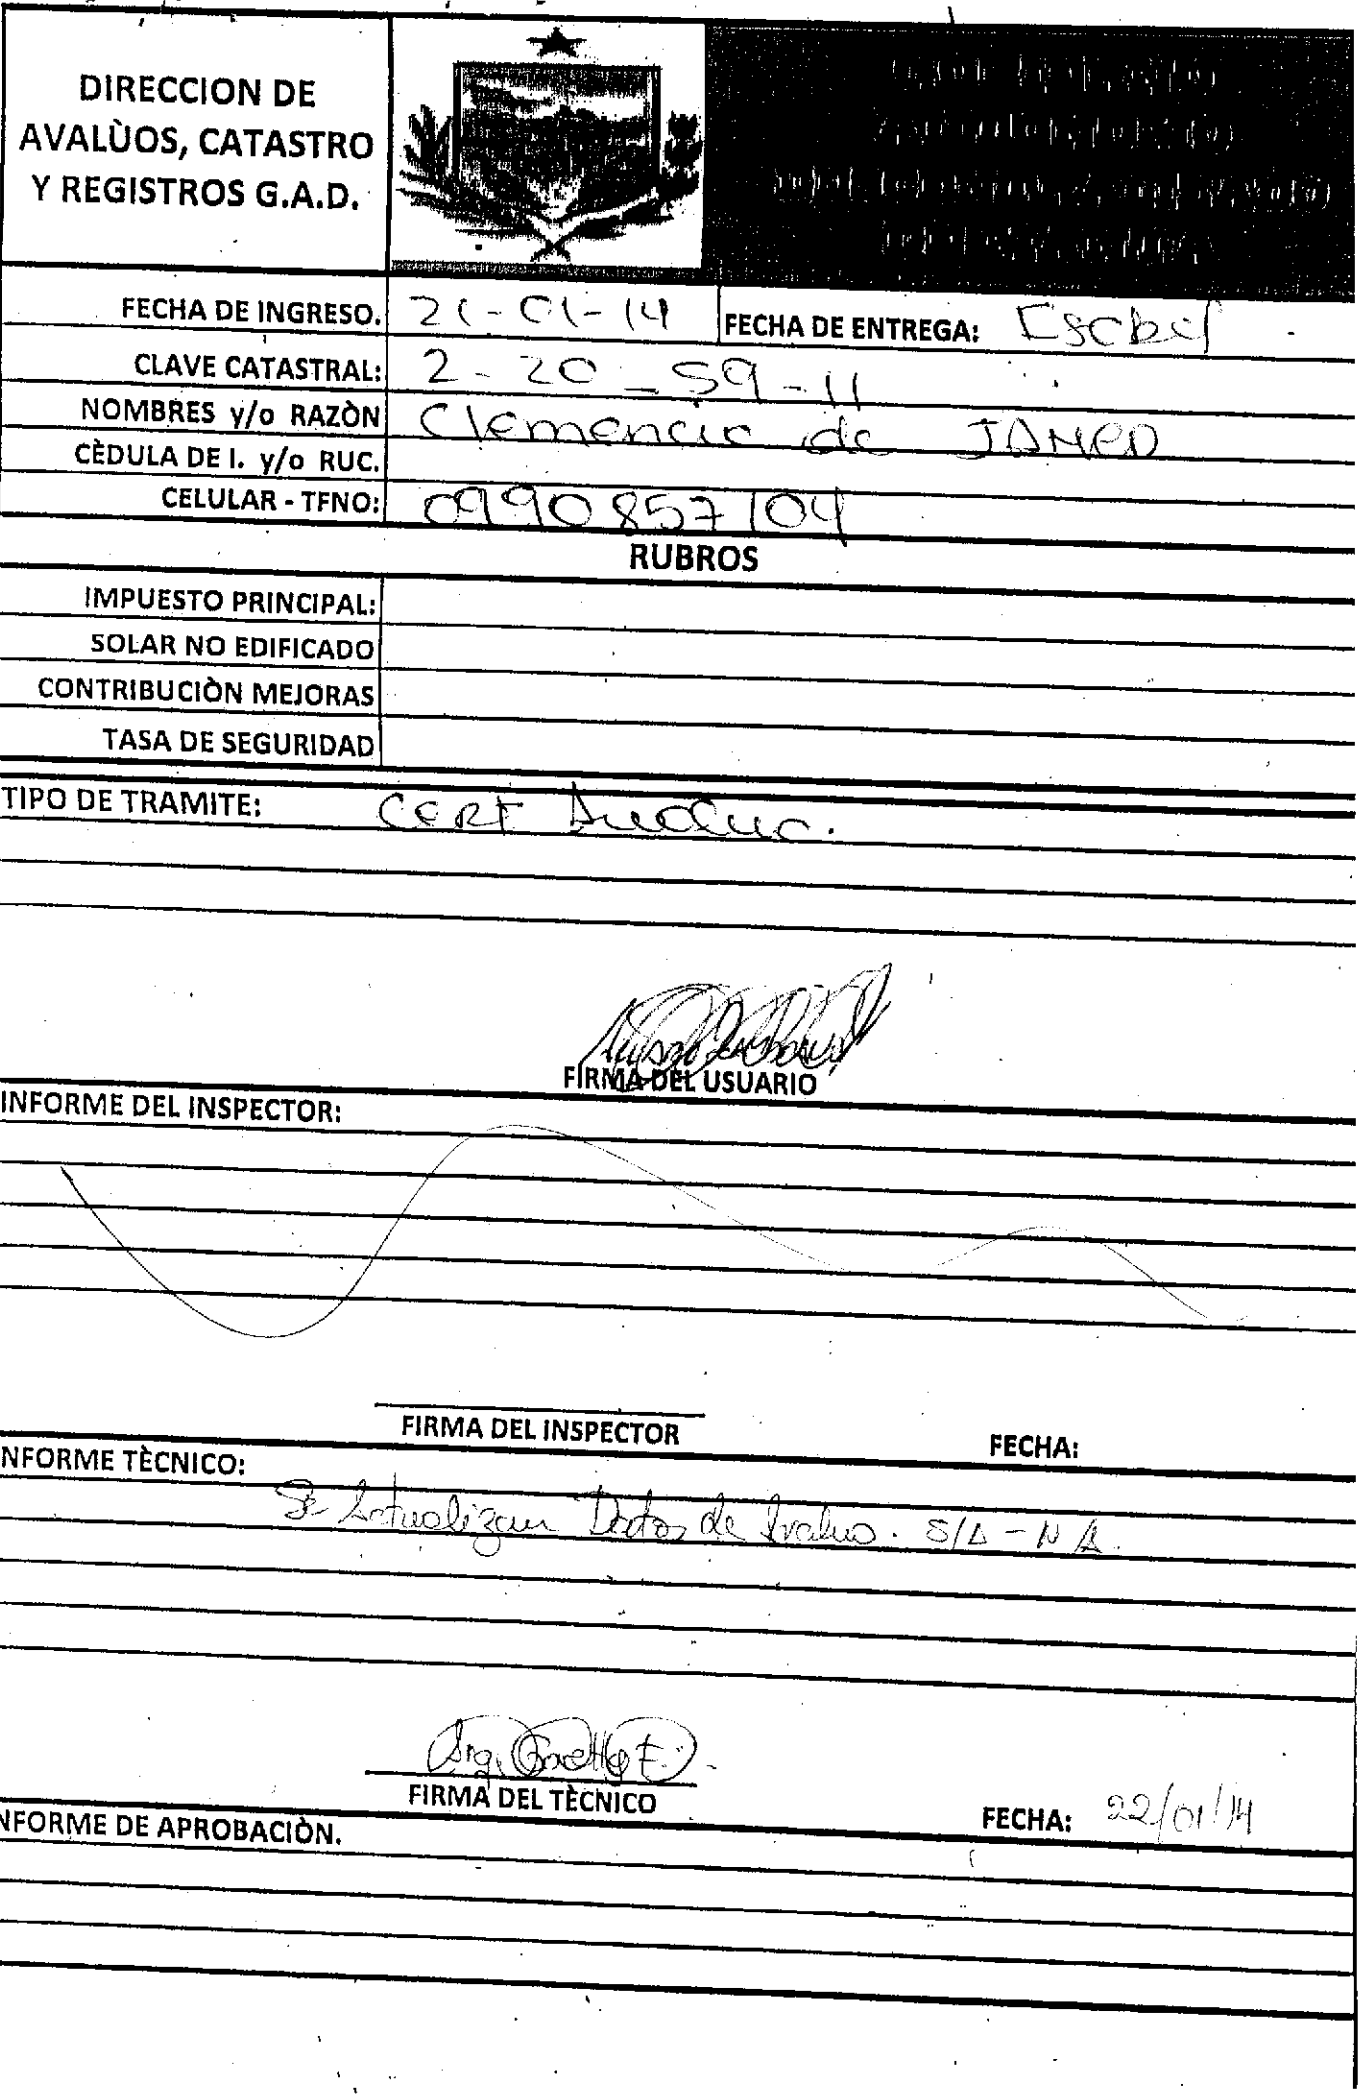 DIRECCION DE
AVALÙOS, CATASTRO
Y REGISTROS G.A.D.
FECHA DE INGRESO. 21-01-14 FECHA DE ENTREGA:
CLAVE CATASTRAL: 2-20-59-11
NOMBRES y/o RAZÒN Clemencia de
CÈDULA DE I. y/o RUC.
CELULAR - TFNO: 0990857104
RUBROS
IMPUESTO PRINCIPAL:
SOLAR NO EDIFICADO
CONTRIBUCIÒN MEJORAS
TASA DE SEGURIDAD
TIPO DE TRAMITE: CERT
FIRMA DEL USUARIO
INFORME DEL INSPECTOR:
FIRMA DEL INSPECTOR FECHA:
NFORME TÈCNICO:
Se Actualizan Datos de Avaluo. S/A - N/A.
FIRMA DEL TÈCNICO FECHA: 22/01/14
NFORME DE APROBACIÒN.